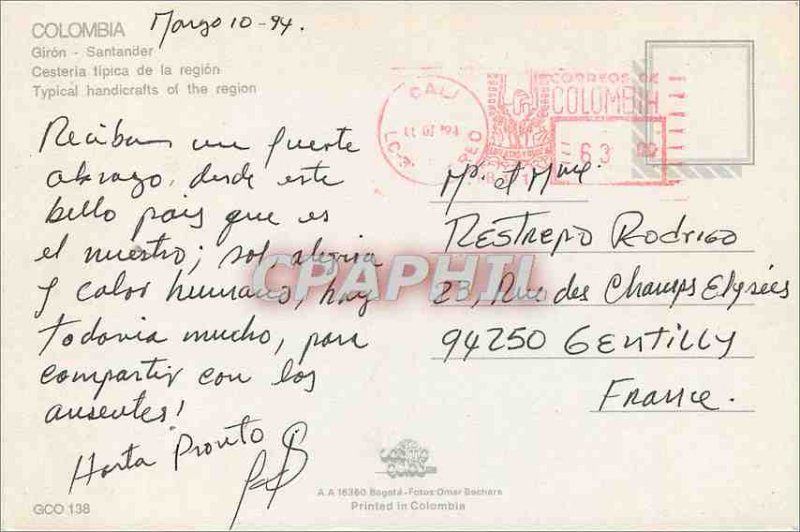 COLOMBIA
Marzo 10-94.
Girón - Santander
Cestería típica de la región
Typical handicrafts of the region
Reciban un fuerte
abrazo, desde este
bello pais que es
el nuestro; sol, alegria
y calor humano, hay
todavia mucho, para
compartir con los
ausentes!
Hasta Pronto
GCO 138
CALI
CORREOS DE
COLOMBIA
63 00
Mr. et Mme.
RESTREPO RODRIGO
23, Rue des Champs Elysées
94250 GENTILLY
France.
CPAPHIL
A A 16360 Bogotá - Fotos: Omar Bechara
Printed in Colombia